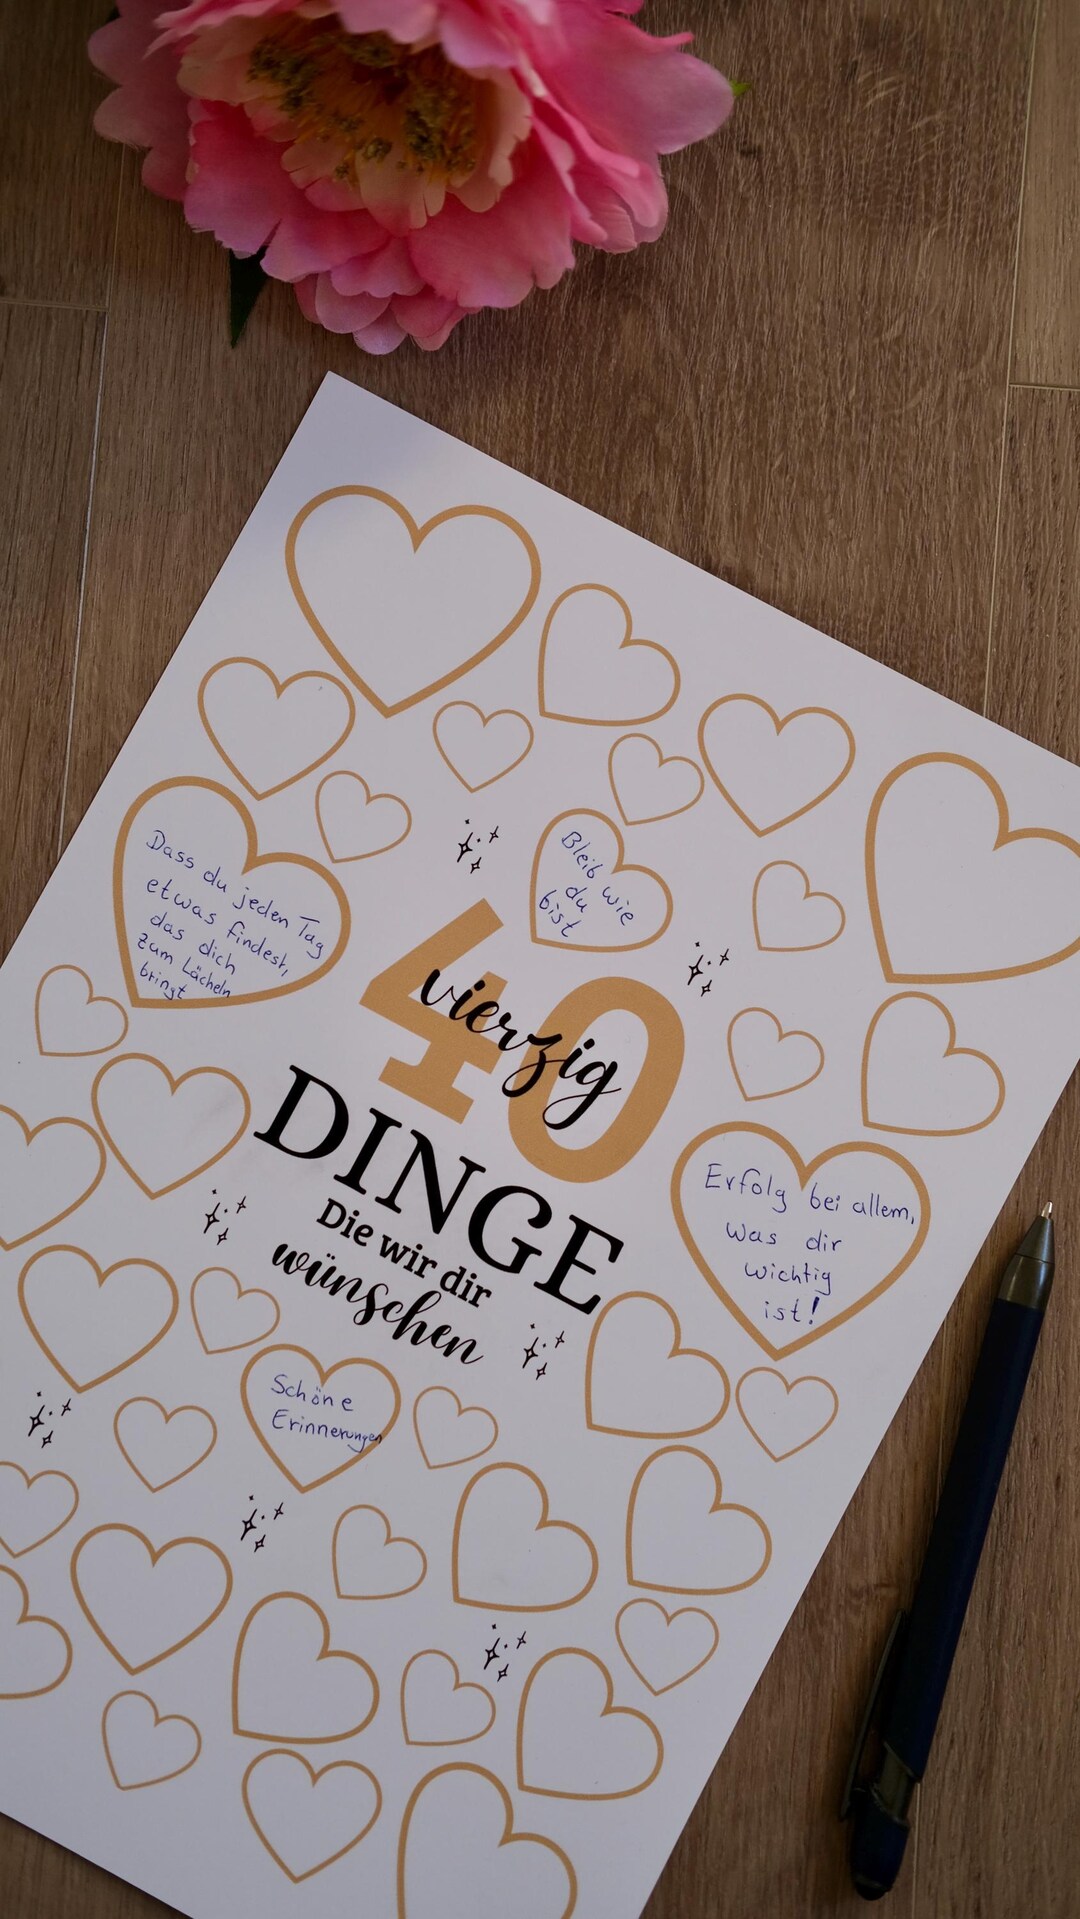 Dass du jeden Tag
etwas findest,
das dich
zum Lächeln
bringt
Bleib wie
du
bist
40
vierzig
DINGE
Die wir dir
wünschen
Erfolg bei allem,
was dir
wichtig
ist!
Schöne
Erinnerungen